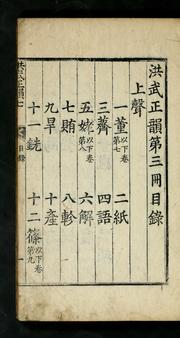 洪武正韻第三冊目錄
上聲
一董以下卷第七
二紙
三薺
四語
五姥以下卷第八
六解
七賄
八軫
九旱
十產
十一銑
十二篠以下卷第九